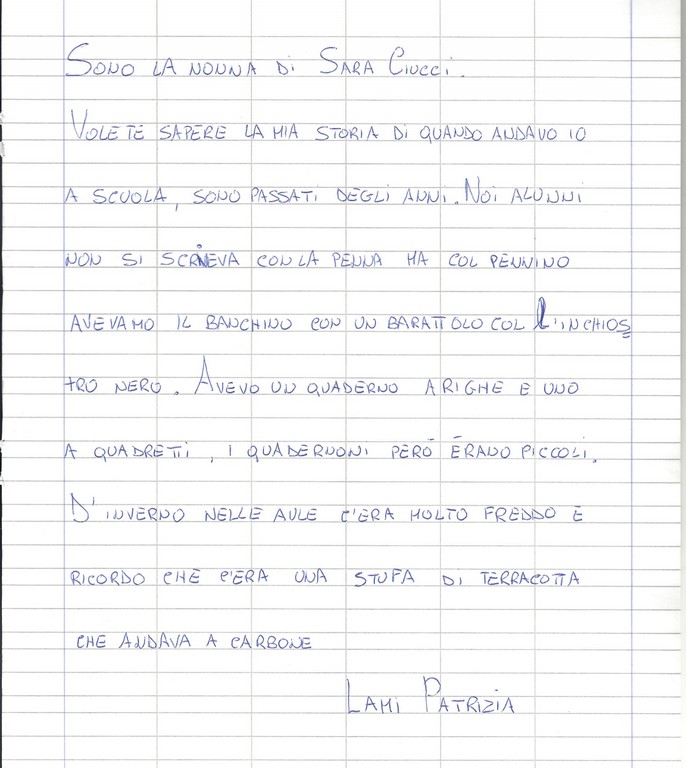 SONO LA NONNA DI SARA CIUCCI.
VOLETE SAPERE LA MIA STORIA DI QUANDO ANDAVO IO
A SCUOLA, SONO PASSATI DEGLI ANNI. NOI ALUNNI
NON SI SCRIVEVA CON LA PENNA MA COL PENNINO
AVEVAMO IL BANCHINO CON UN BARATTOLO COL L'INCHIOS
TRO NERO. AVEVO UN QUADERNO A RIGHE E UNO
A QUADRETTI, I QUADERNONI PERÒ ERANO PICCOLI.
D'INVERNO NELLE AULE C'ERA MOLTO FREDDO E
RICORDO CHE C'ERA UNA STUFA DI TERRACOTTA
CHE ANDAVA A CARBONE
LAMI PATRIZIA